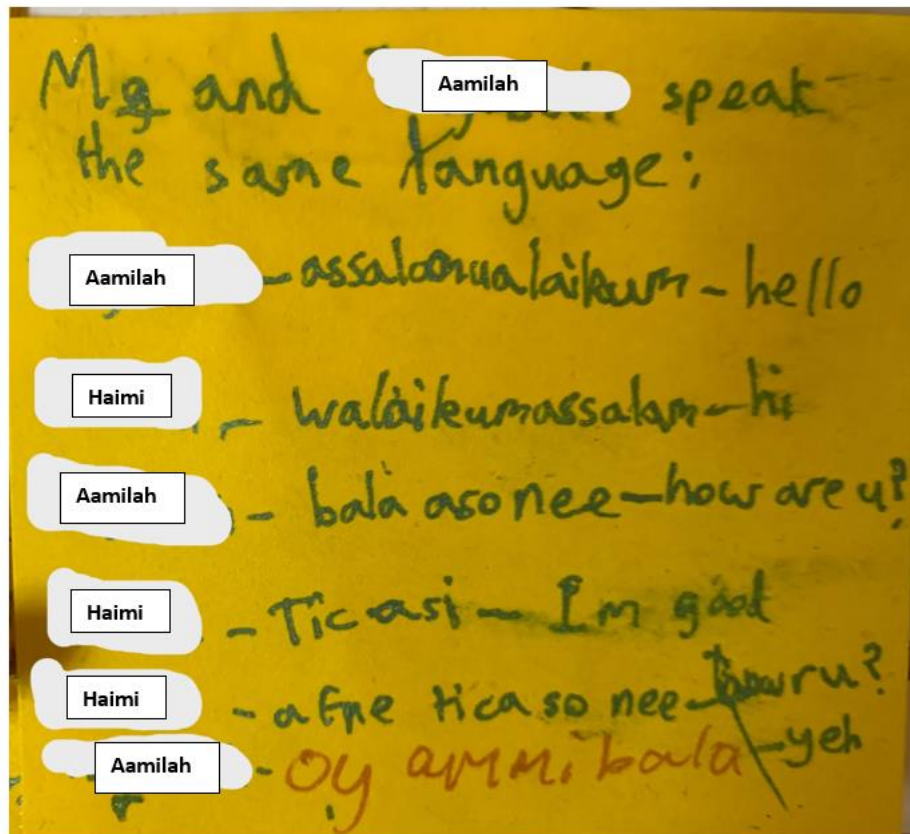 Me and Aamilah speak
the same language:
Aamilah - assalamualaikum - hello
Haimi - walaikumassalam - hi
Aamilah - bala aso nee - how are u?
Haimi - Tic asi - Im good
Haimi - afne tic aso nee - how r u?
Aamilah - Oy ammi bala - yeh